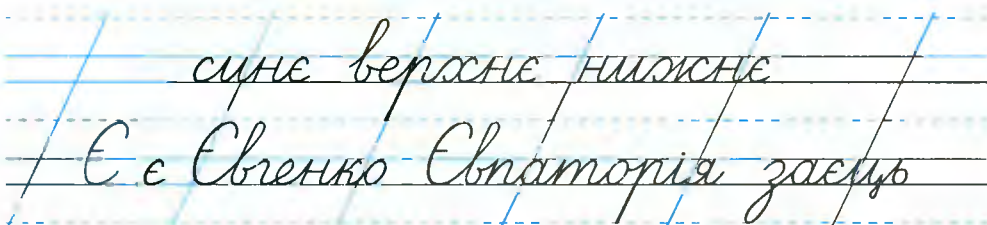 синє верхнє нижнє
Є є Євгенко Євпаторія заєць